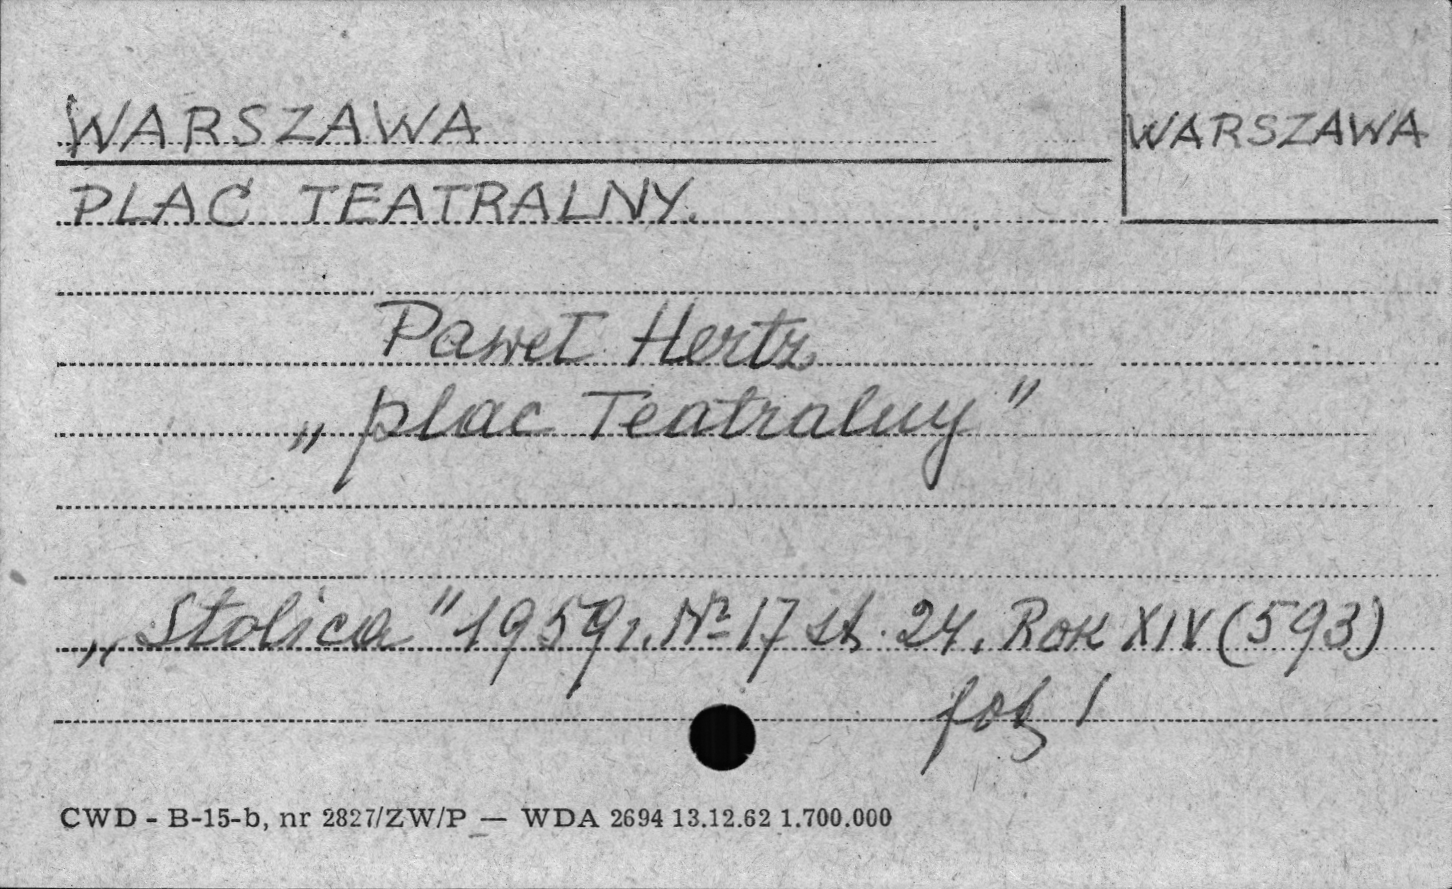 WARSZAWA
WARSZAWA
PLAC TEATRALNY.
Paweł Hertz
„plac Teatralny"
„Stolica" 1959r. № 17 st. 24. Rok XIV (593)
fot 1
CWD - B-15-b, nr 2827/ZW/P — WDA 2694 13.12.62 1.700.000